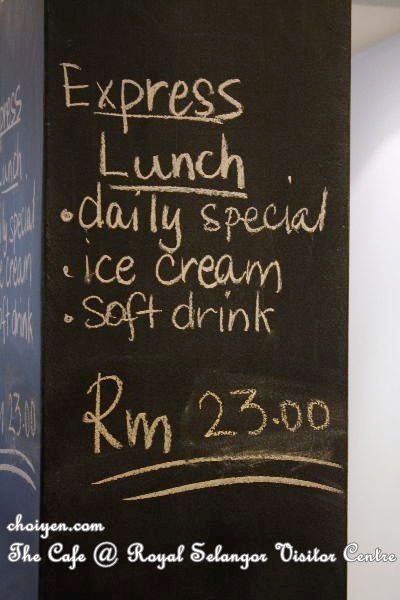 Express
Lunch
• daily special
• ice cream
• soft drink
Rm 23.00
ress
unch
ly special
e cream
ft drink
23.00
choiyen.com
The Cafe @ Royal Selangor Visitor Centre